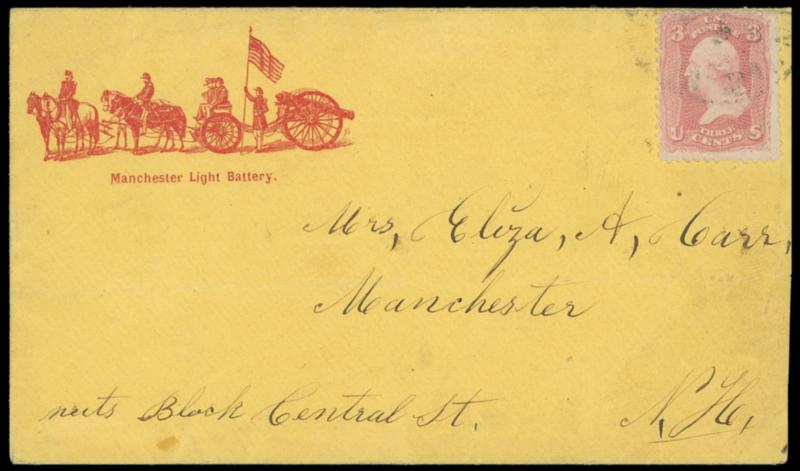 3 U.S. POSTAGE 3
U THREE CENTS S
Manchester Light Battery.
Mrs, Eliza, A, Carr,
Manchester
Block Central St. N, H,